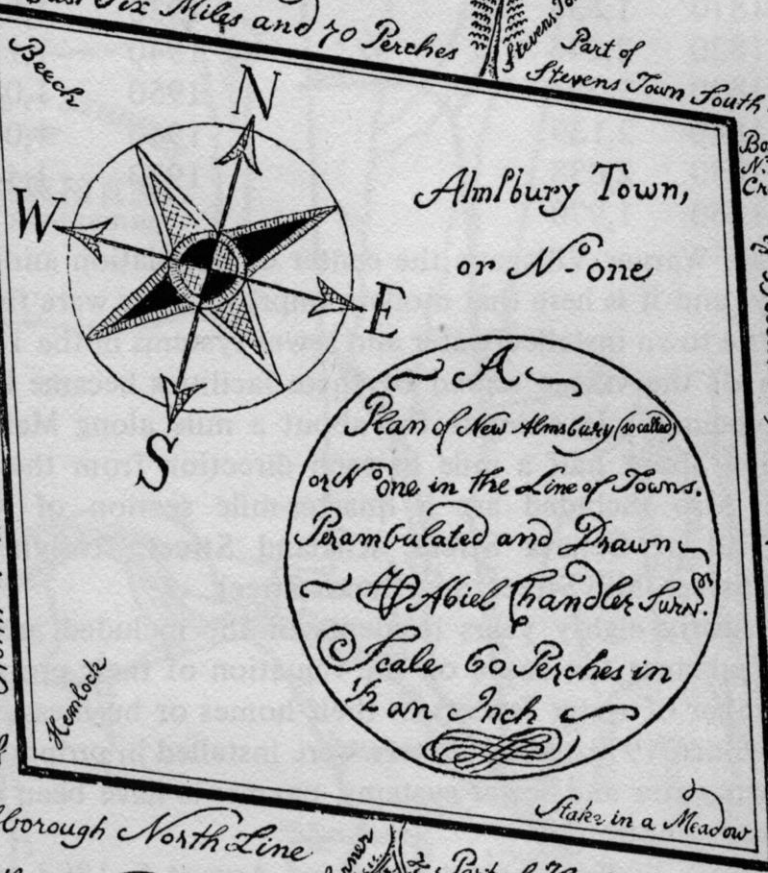 Six Miles and 70 Perches
Stevens
Part of
Stevens Town South
Beech
N
W
E
S
Almsbury Town,
or No one
A
Plan of New Almsbury (so called)
or No one in the Line of Towns.
Perambulated and Drawn
Abiel Chandler Survr.
Scale 60 Perches in
1/2 an Inch
Hemlock
Stake in a Meadow
borough North Line
Part of